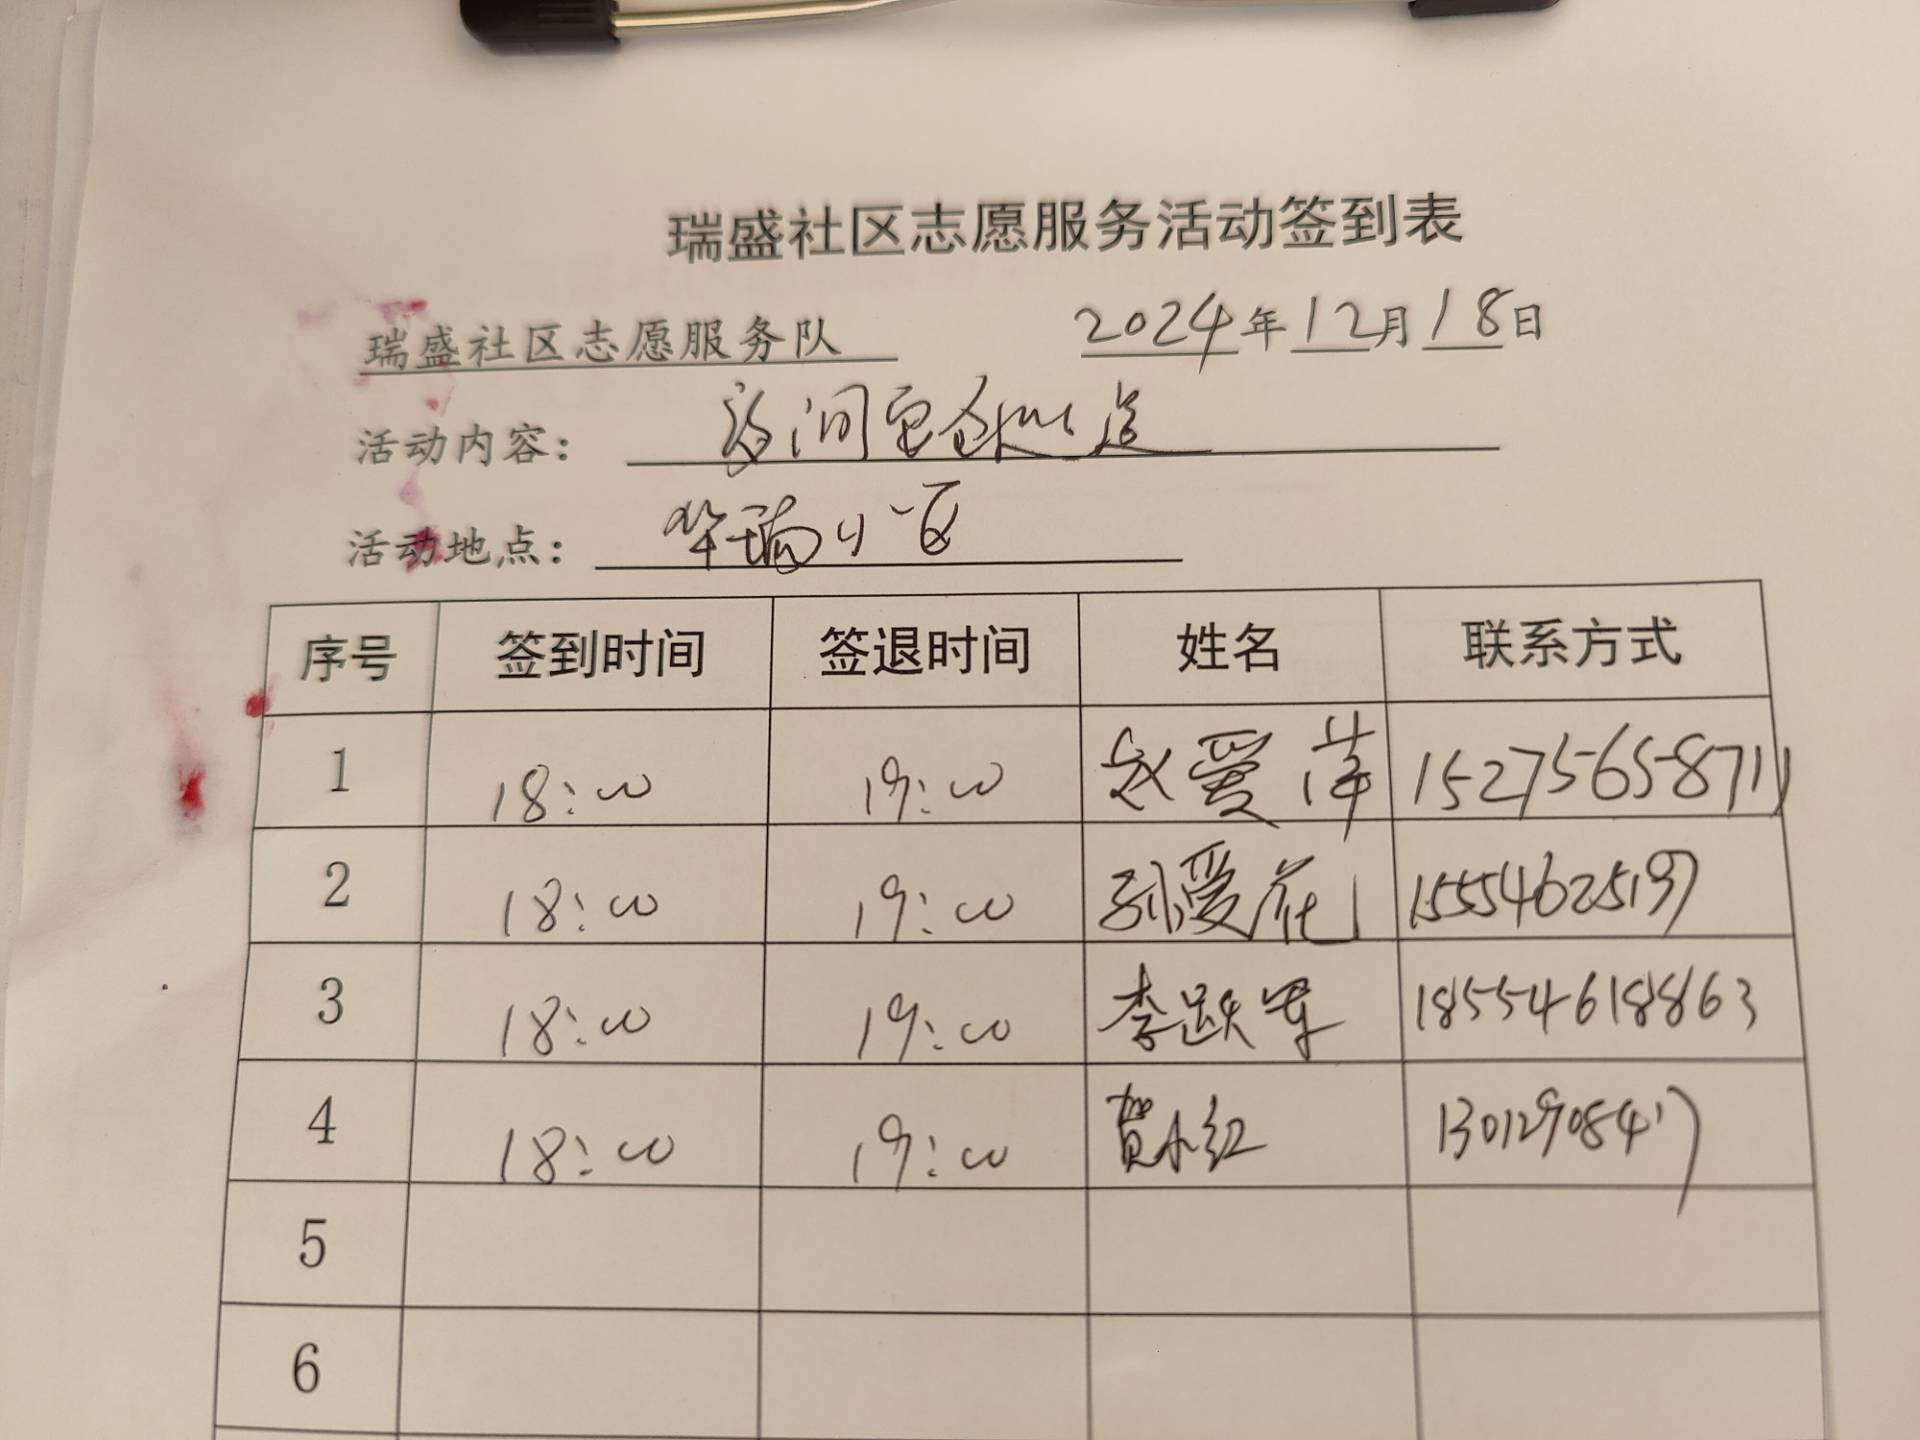 瑞盛社区志愿服务活动签到表
瑞盛社区志愿服务队 2024年12月18日
活动内容：夜间安全巡逻
活动地点：华瑞小区
序号 签到时间 签退时间 姓名 联系方式
1 18:00 19:00 赵爱萍 15275658711
2 18:00 19:00 孙爱花 15554625197
3 18:00 19:00 李跃军 18554618863
4 18:00 19:00 贺小红 13012908417
5
6